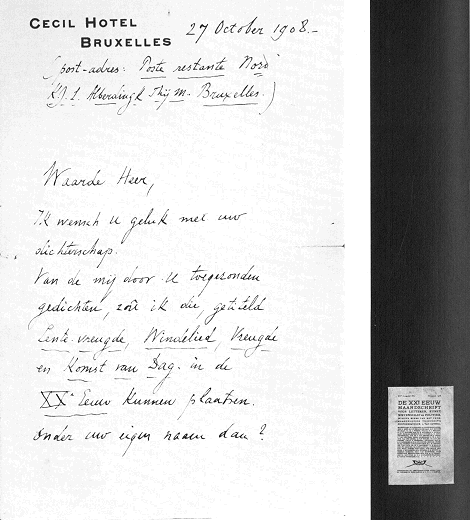 CECIL HOTEL
BRUXELLES
27 October 1908.-
(post-adres: Poste restante Nord
K.J.L. Alberdingk Thijm. Bruxelles.)
Waarde Heer,
Ik wensch U geluk met uw
dichterschap.
Van de mij door U toegezonden
gedichten, zoû ik die, getiteld
Lente-vreugde, Windelied, Vreugde
en Komst van Dag. in de
XXe Eeuw kunnen plaatsen.
Onder uw eigen naam dan?
DE XXE EEUW
MAANDSCHRIFT
VOOR LETTEREN, KUNST,
WETENSCHAP & POLITIEK